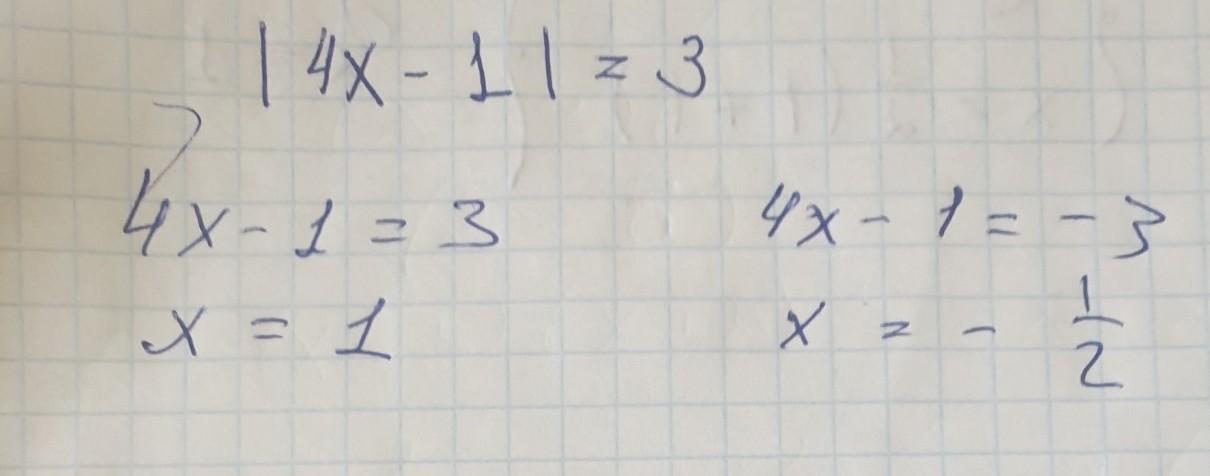 |4x-1|=3
4x-1=3 4x-1=-3
x=1 x=-1/2